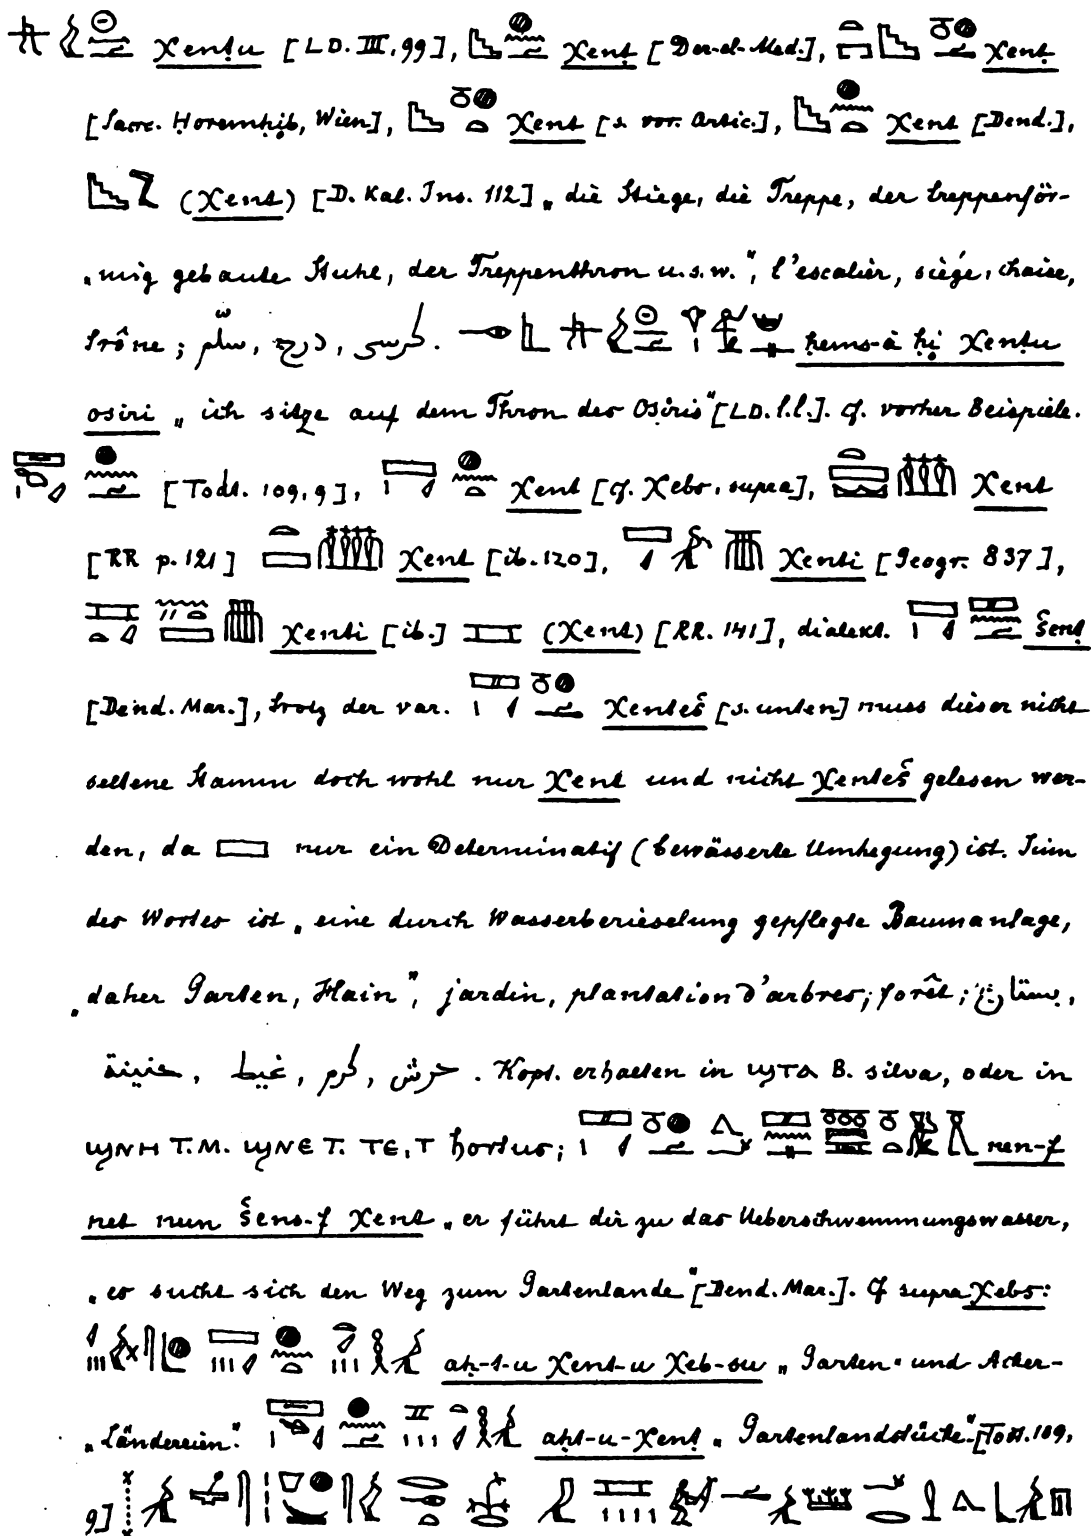 Xenṭu [LD. III, 99], Xenṭ [Der-el-Med.], Xenṭ
[Sarc. Ḥoremḥib, Wien], Xent [s. vor. Artic.], Xent [Dend.],
(Xent) [D. Kal. Ins. 112] „die Stiege, die Treppe, der treppenför-
„mig gebaute Stuhl, der Treppenthron u.s.w.", l'escalier, siège, chaise,
trône; سلم, درج, كرسى. ḥems-à ḥi Xenṭu
osiri „ich sitze auf dem Thron des Osiris" [LD. l.l.]. cf. vorher Beispiele.
[Todt. 109,9], Xent [cf. Xebs, supra], Xent
[RR p. 121] Xent [ib. 120], Xenti [Geogr. 837],
Xenti [ib.] (Xent) [RR. 141], dialekt. šenṭ
[Dend. Mar.], trotz der var. Xenteš [s. unten] muss dieser nicht
seltene Stamm doch wohl nur Xent und nicht Xenteš gelesen wer-
den, da nur ein Determinatif (bewässerte Umhegung) ist. Sinn
des Wortes ist „eine durch Wasserberieselung gepflegte Baumanlage,
„daher Garten, Hain", jardin, plantation d'arbres, forêt; بستان,
حرش, كرم, غيط, جنينة. Kopt. erhalten in ϣⲧⲁ B. silva, oder in
ϣⲛⲏ T.M. ϣⲛⲉ T. ⲧⲉ, ⲧ hortus; nen-f
net nun šens-f Xent „er führt dir zu das Ueberschwemmungswasser,
„es sucht sich den Weg zum Gartenlande" [Dend. Mar.]. Cf supra Xebs:
aḥ-t-u Xent-u Xeb-su „Garten- und Acker-
„Ländereien". aḥt-u-Xenṭ „Gartenlandstücke" [Todt. 109,
9]